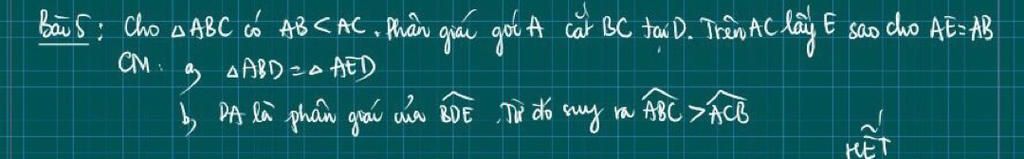 Bài 5: Cho △ABC có AB < AC. Phân giác góc A cắt BC tại D. Trên AC lấy E sao cho AE=AB
CM: a, △ABD = △AED
b, DA là phân giác của \widehat{BDE}. Từ đó suy ra \widehat{ABC} > \widehat{ACB}
~
HẾT